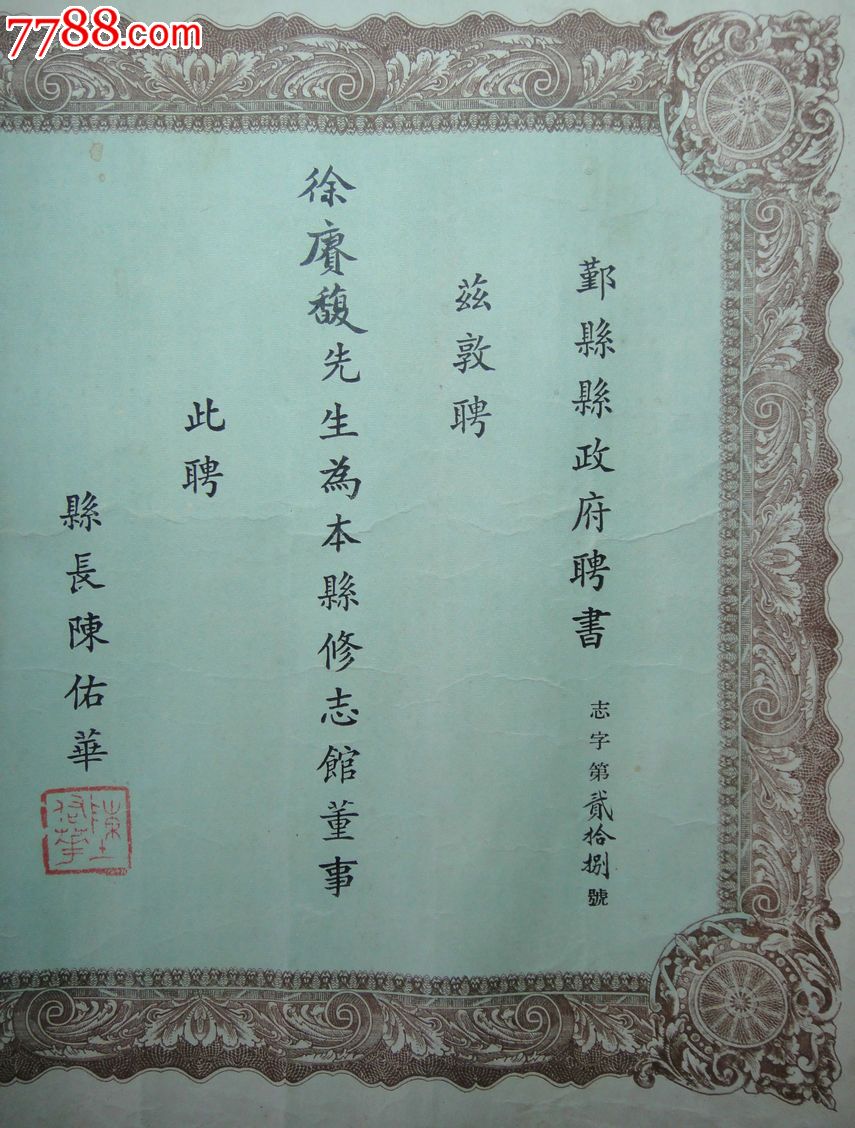 7788.com
鄞縣縣政府聘書 志字第貳拾捌號
茲敦聘
徐賡馥先生為本縣修志館董事
此聘
縣長陳佑華